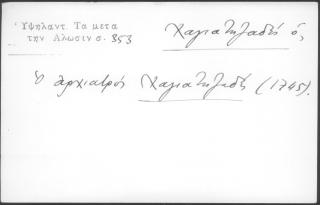 Ὑψηλαντ. Τα μετα
την Αλωσιν σ. 853
Χαγιατηζαδές ὁ,
Ὁ ἀρχιατρός Χαγιατηζαδές (1745).